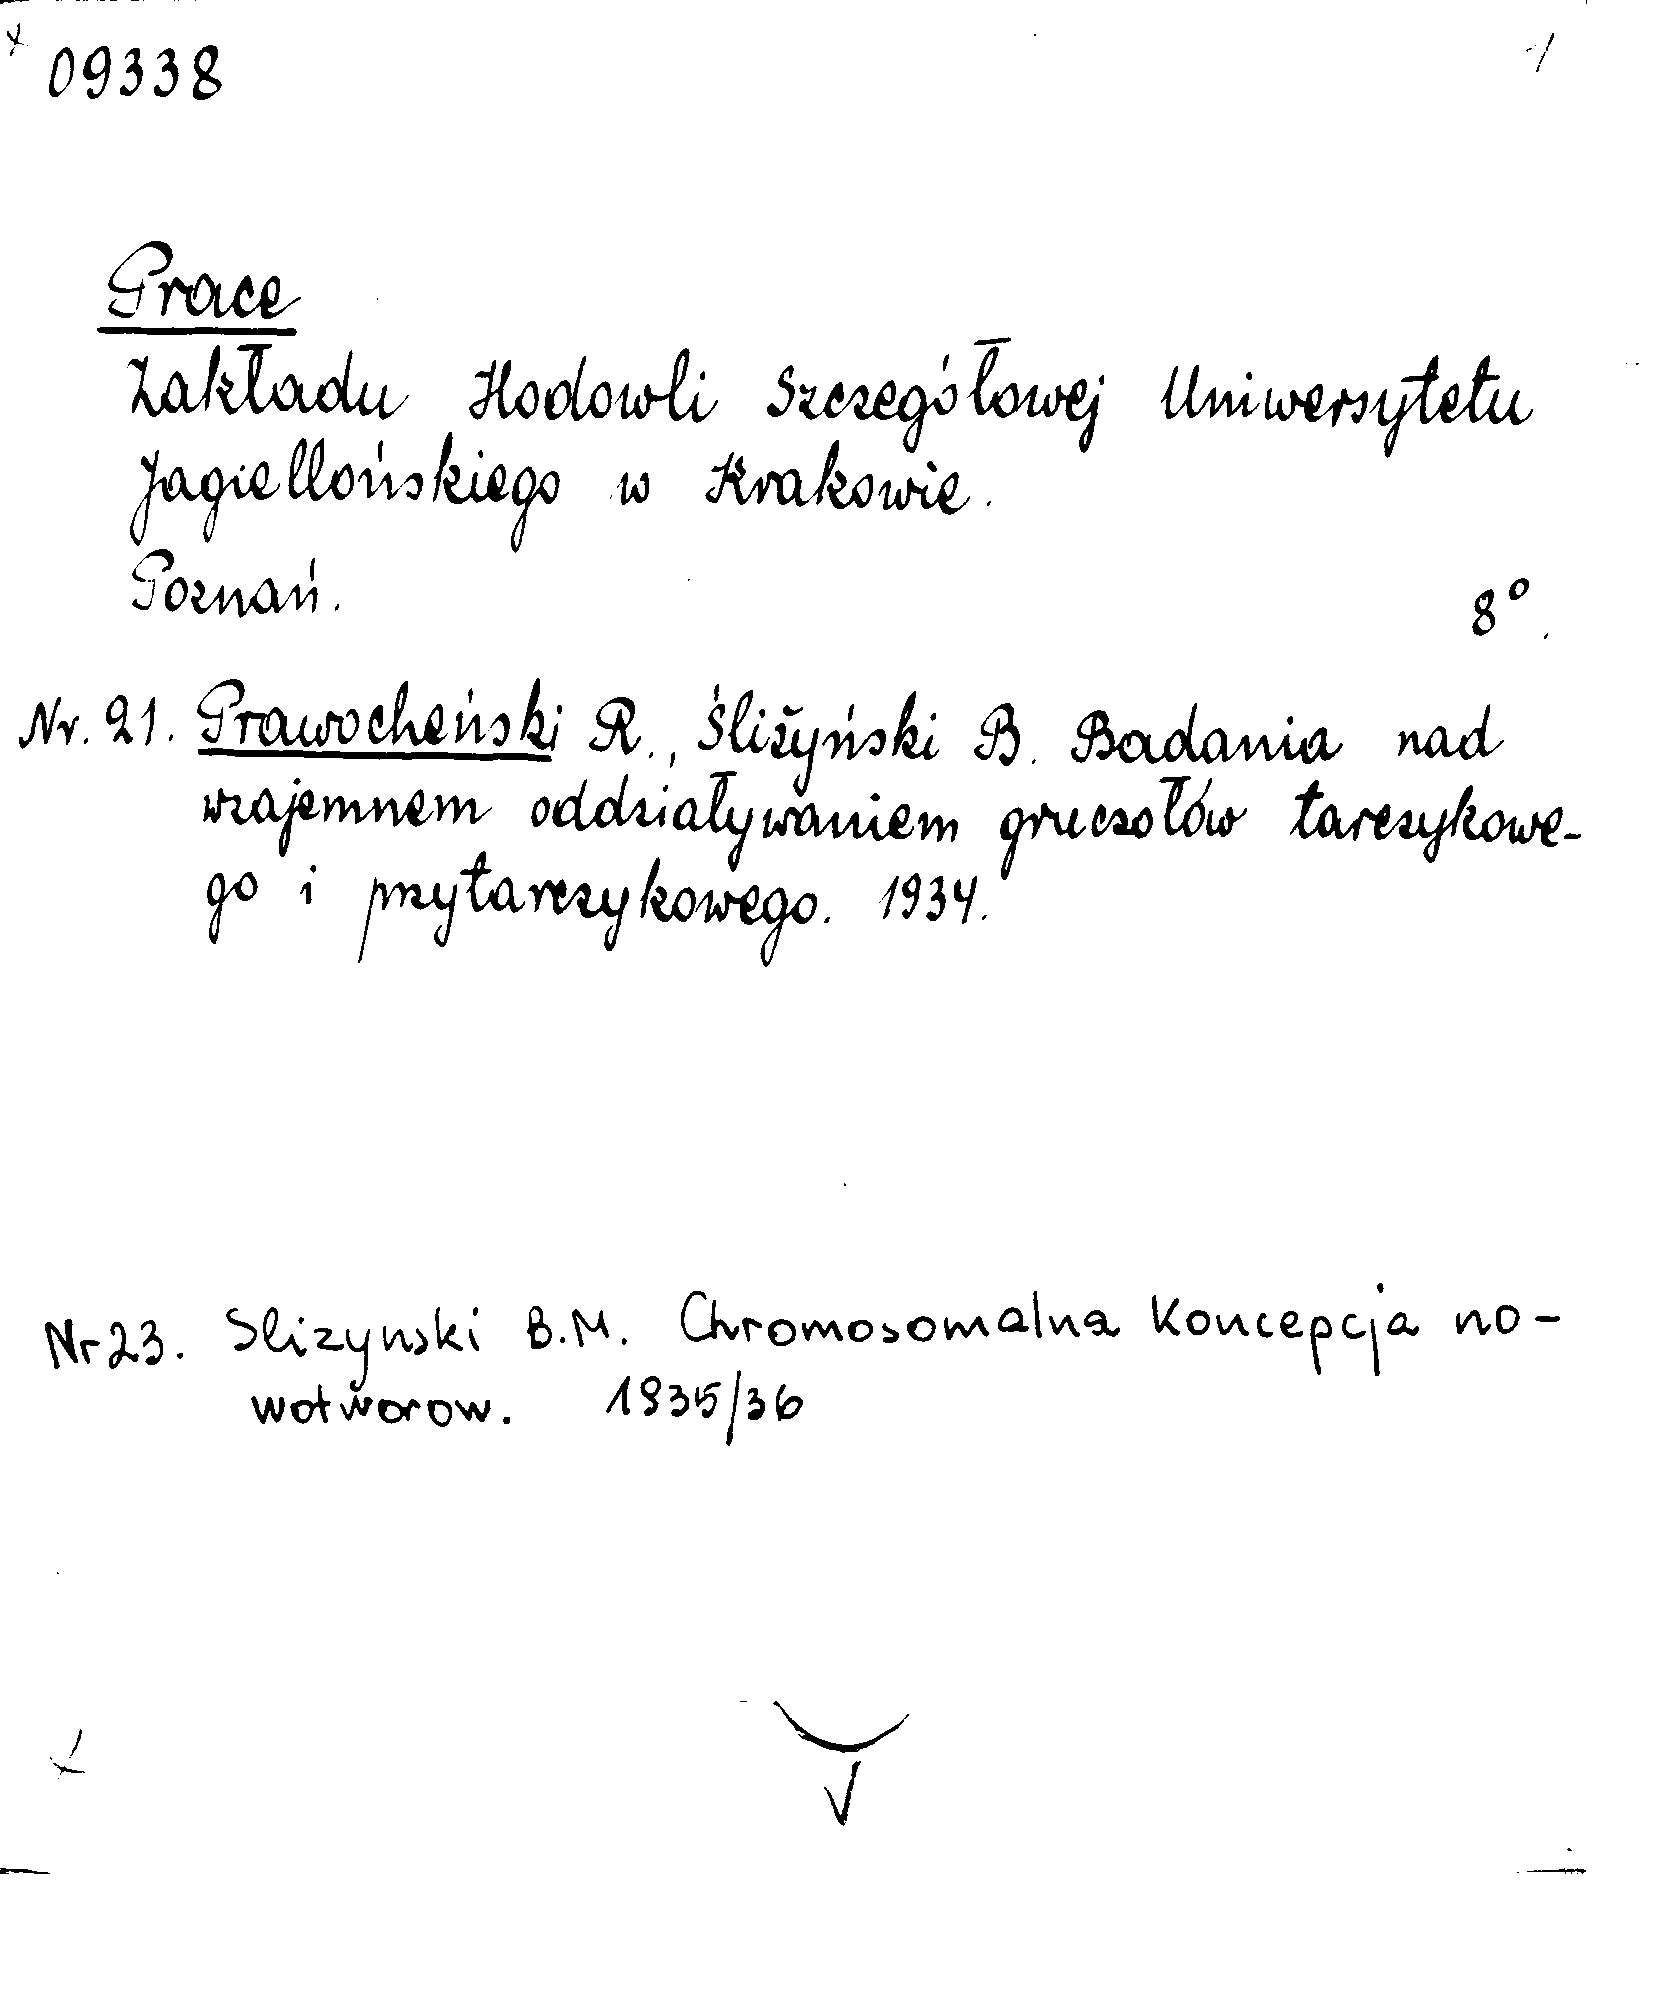 09338
Prace
Zakładu Hodowli Szczegółowej Uniwersytetu
Jagiellońskiego w Krakowie.
Poznań. 8°.
Nr. 21. Prawocheński R., Śliżyński B. Badania nad
wzajemnem oddziaływaniem gruczołów tarczykowe-
go i przytarczykowego. 1934.
Nr 23. Slizynski B.M. Chromosomalna Koncepcja no-
wotworow. 1935/36